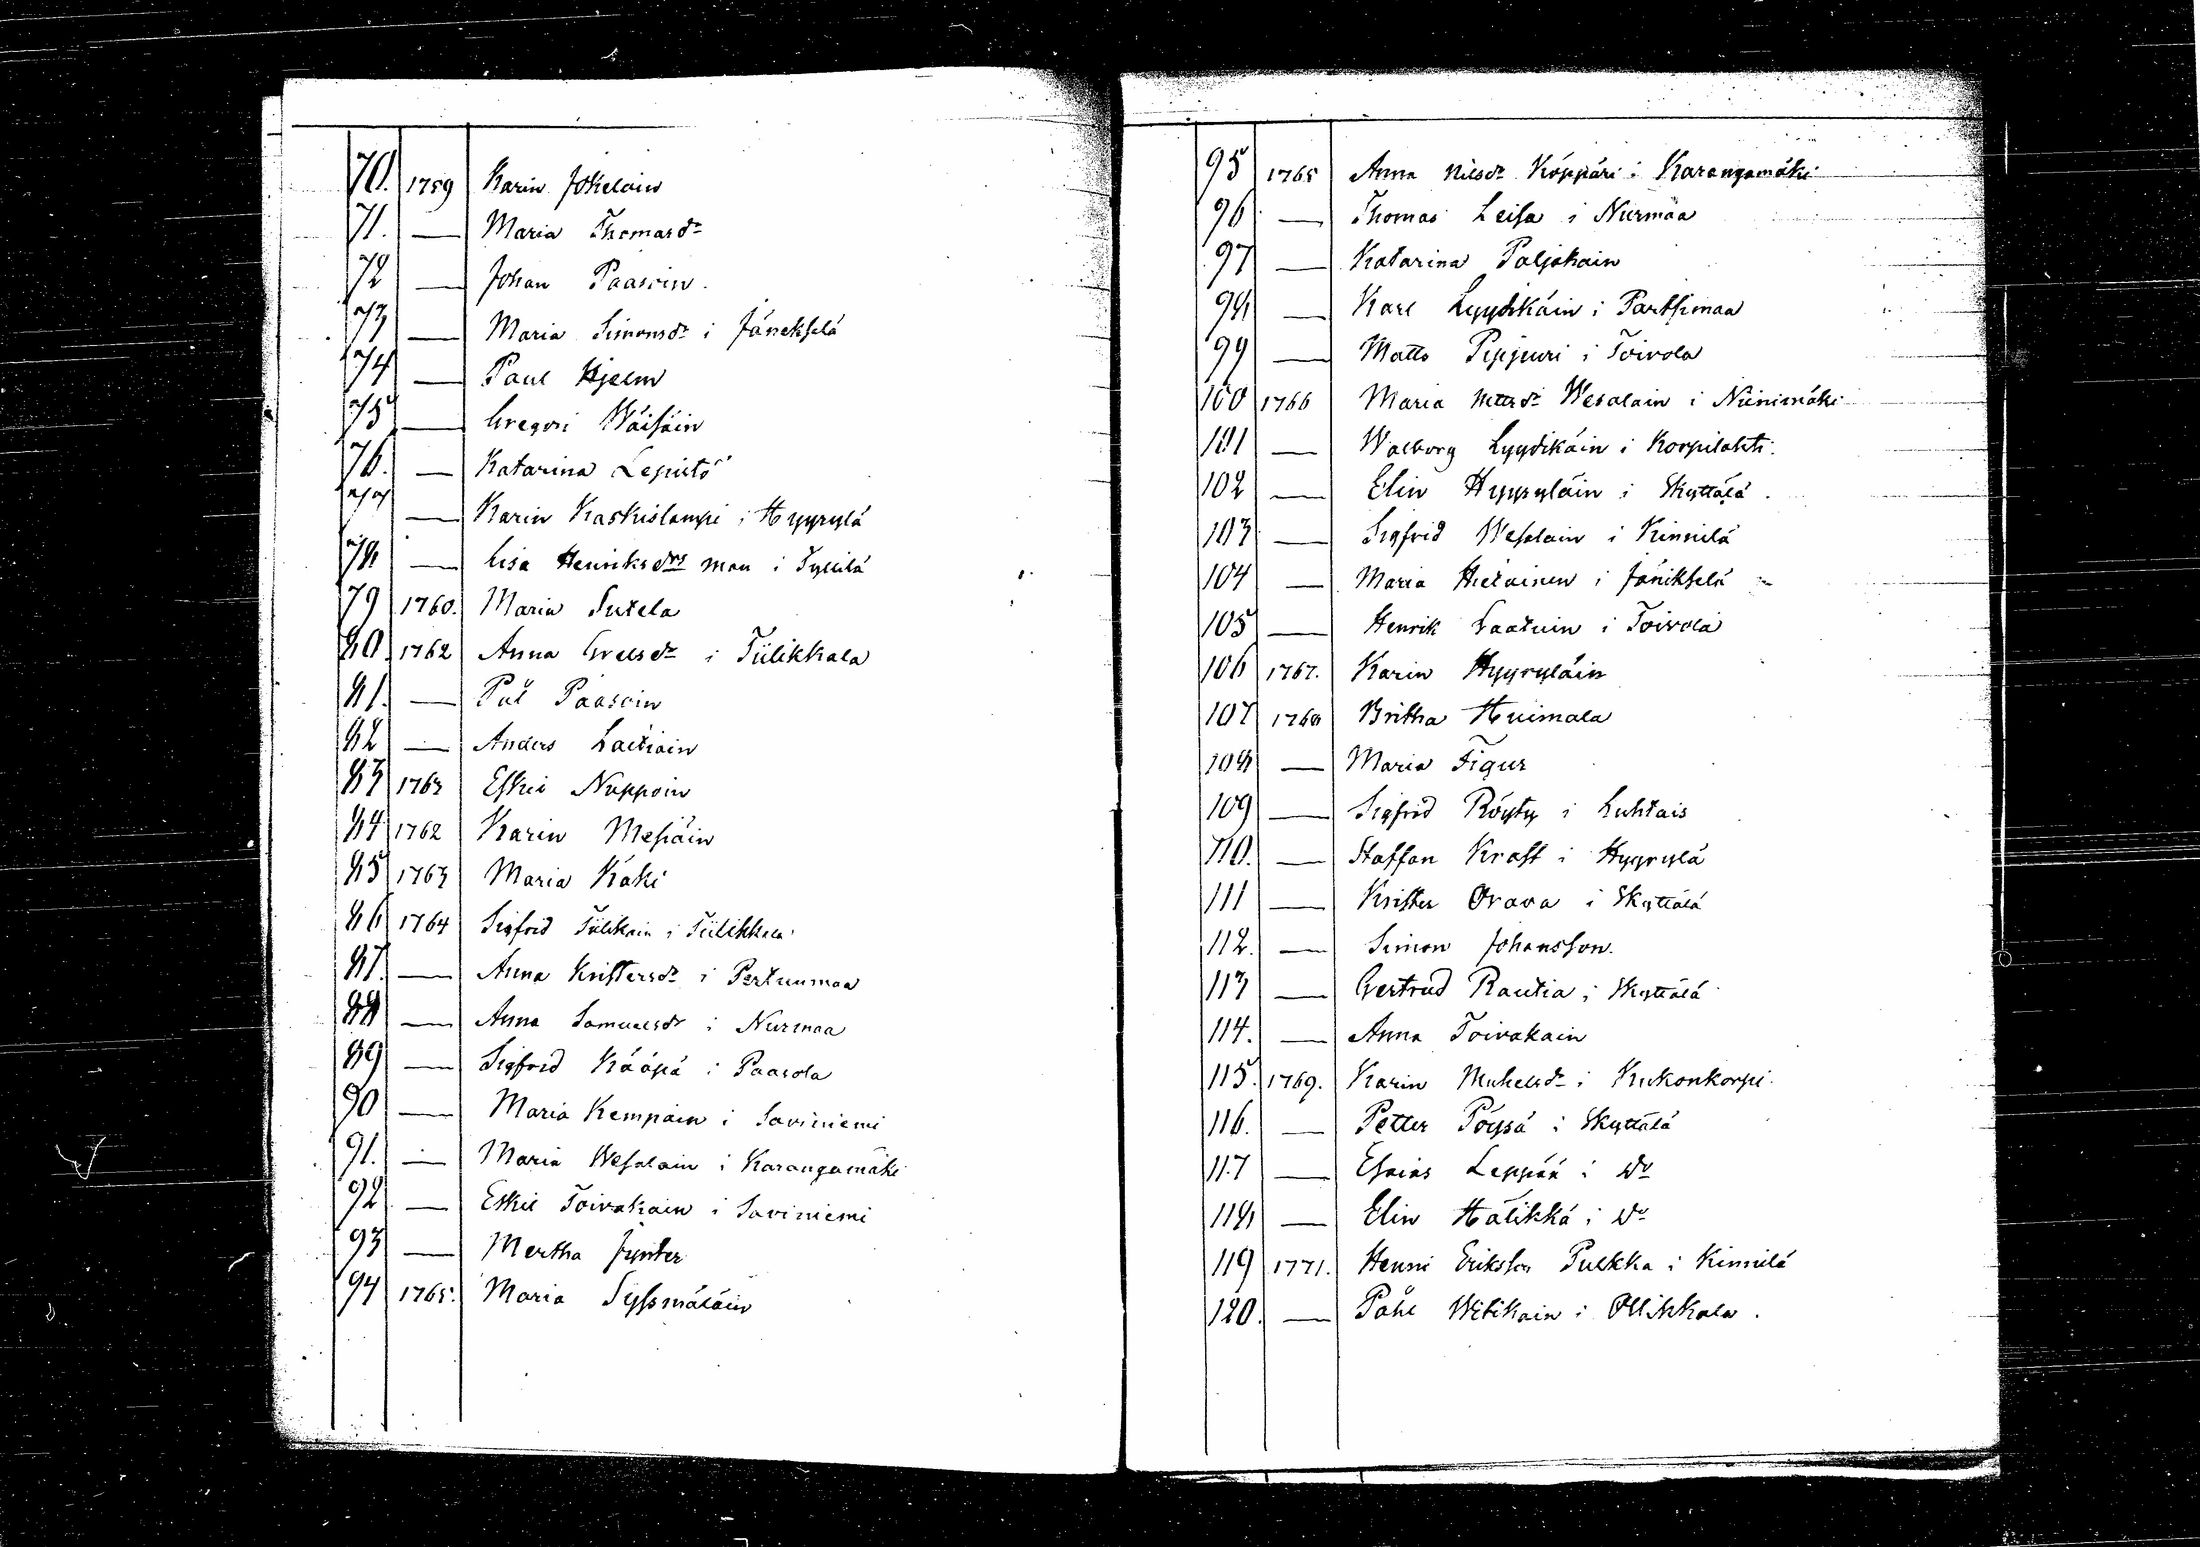 70. 1759 Karin Jokelain
71. — Maria Thomasdr
72 — Johan Paasoin.
73 — Maria Simonsdr i Jänekselä
74 — Paul Hjelm
75 — Gregori Wäisäin
76. — Katarina Lepistö
77 — Karin Kaskislampi i Hyyrylä
78 — Lisa Henriksdrs man i Tyllilä
79 1760. Maria Sutela
80. 1762 Anna Grelsdr i Tiilikkala
81. — Pål Paasoin
82 — Anders Laitiain
83 1763 Eskil Nuppoin
84 1762 Karin Mesiäin
85 1763 Maria Käki
86 1764 Sigfrid Tiilikain i Tiilikkala
87. — Anna Kristersdr i Pertunmaa
88 — Anna Samuelsdr i Nurmaa
89 — Sigfrid Kääpä i Paasola
90 — Maria Kempain i Saviniemi
91. — Maria Wesalain i Karangamäki
92 — Eskil Toivakain i Saviniemi
93 — Mertha Jynter
94 1765. Maria Syssmäläin
95 1765 Anna Nilsdr Köppäri i Karangamäki
96 — Thomas Leisa i Niirmäa
97 — Katarina Paljakain
98 — Karl Lyydikäin i Partsimaa
99 — Matts Pipjuuri i Toivola
100 1766 Maria Mattsdr Wesalain i Niinimäki
101 — Walborg Lyydikäin i Korpilahti.
102 — Elin Hyyryläin i Skyttälä.
103 — Sigfrid Wesalain i Kinnilä
104 — Maria Hietainen i Jänikselä
105 — Henrik Laatuin i Toivola
106 1767. Karin Hyyryläin
107 1768 Britha Huimala
108 — Maria Figur
109 — Sigfrid Röyty i Luhtais
110. — Staffan Kraft i Hyyrylä
111 — Krister Orava i Skyttälä
112. — Simon Johansson.
113 — Gertrud Rautia i Skyttälä
114. — Anna Toivakain
115. 1769. Karin Mickelsdr i Kukonkorpi.
116. — Petter Pöysä i Skyttälä
117 — Esaias Leppää i Do
118 — Elin Hälikkä i Do
119 1771. Henric Eriksson Pulkka i Kinnilä
120. — Påhl Witikain i Ollikkala.